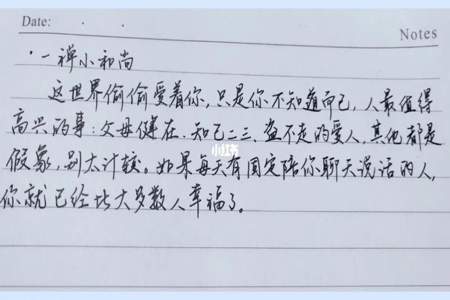 Date:
Notes
·一禅小和尚
这世界偷偷爱着你，只是你不知道而已，人最值得
高兴的事：父母健在、知己二三、盗不走的爱人，其他都是
假象，别太计较。如果每天有固定陪你聊天说话的人，
你就已经比大多数人幸福了。
小红书